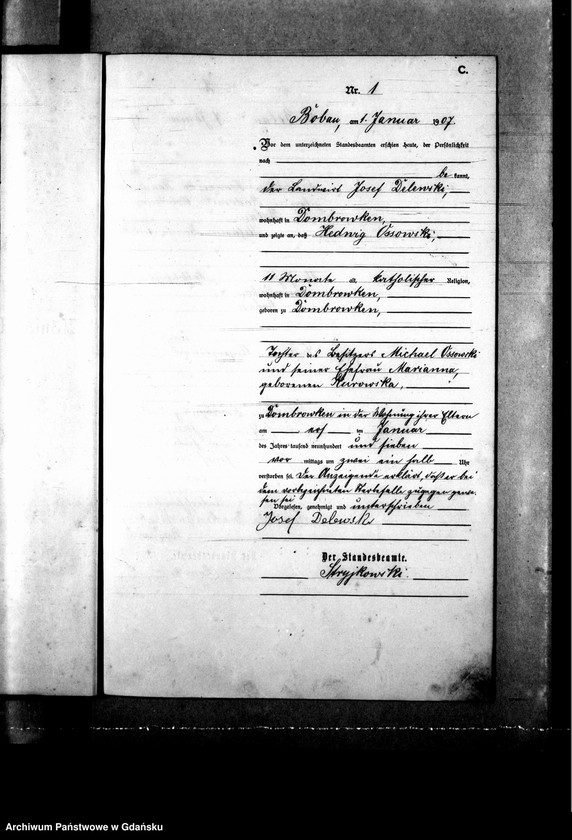 C.
Nr. 1
Bobau, am 1. Januar 1907.
Vor dem unterzeichneten Standesbeamten erschien heute, der Persönlichkeit
nach
be kannt,
der Landwirt Josef Delewski,
wohnhaft in Dombrowken,
und zeigte an, daß Hedwig Ossowski,
11 Monate alt, katholischer Religion,
wohnhaft in Dombrowken,
geboren zu Dombrowken,
Tochter des Besitzers Michael Ossowski
und seiner Ehefrau Marianna,
geborenen Kurowska,
zu Dombrowken in der Wohnung ihrer Eltern
am ersten Januar
des Jahres tausend neunhundert und sieben
vor mittags um zwei ein halb Uhr
verstorben sei. Der Anzeigende erklärt, daß er bei
dem vorbezeichneten Sterbefalle zugegen gewe-
sen sei
Vorgelesen, genehmigt und unterschrieben
Josef Delewski
Der Standesbeamte.
Stryjkowski.
Archiwum Państwowe w Gdańsku